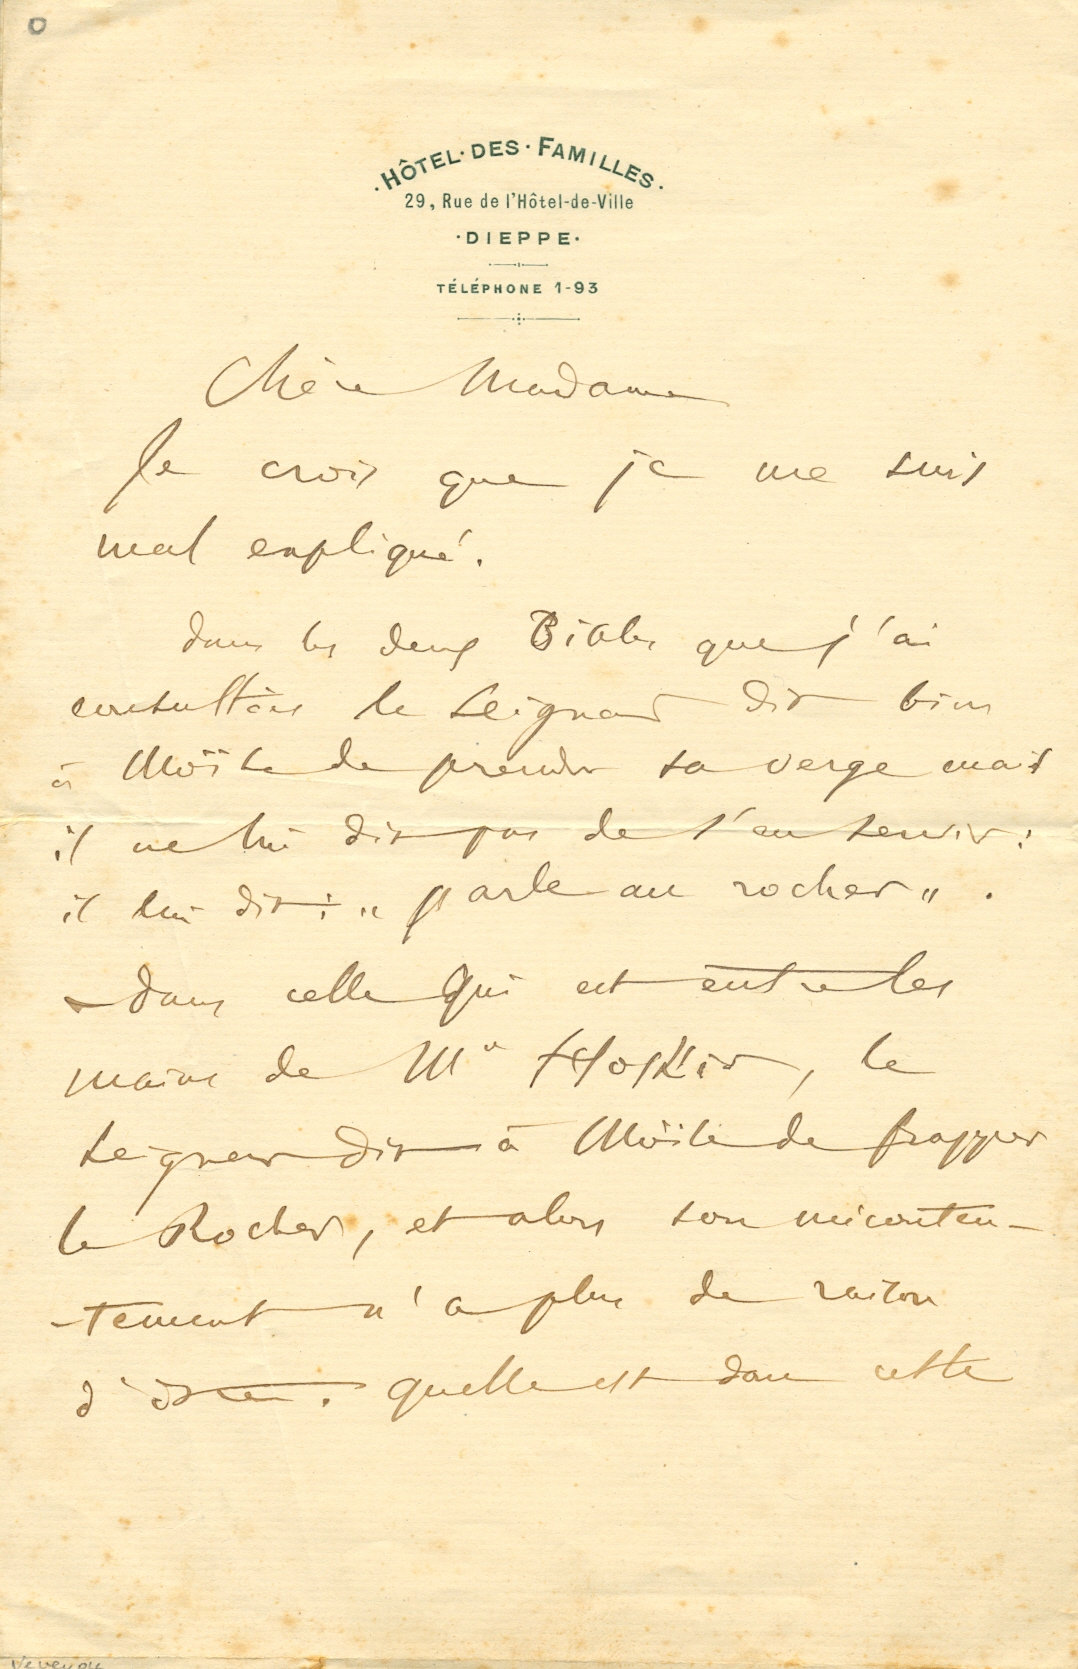 ·HÔTEL·DES·FAMILLES·
29, Rue de l'Hôtel-de-Ville
·DIEPPE·
TÉLÉPHONE 1-93
Chère Madame
Je crois que je me suis
mal expliqué.
dans les deux Bibles que j'ai
consultées le Seigneur dit bien
à Moïse de prendre sa verge mais
il ne lui dit pas de s'en servir :
il lui dit : " parle au rocher " .
- dans celle qui est entre les
mains de Mr , le
Seigneur dit à Moïse de frapper
le Rocher, et alors son méconten-
-tement n'a plus de raison
d'être. quelle est donc cette